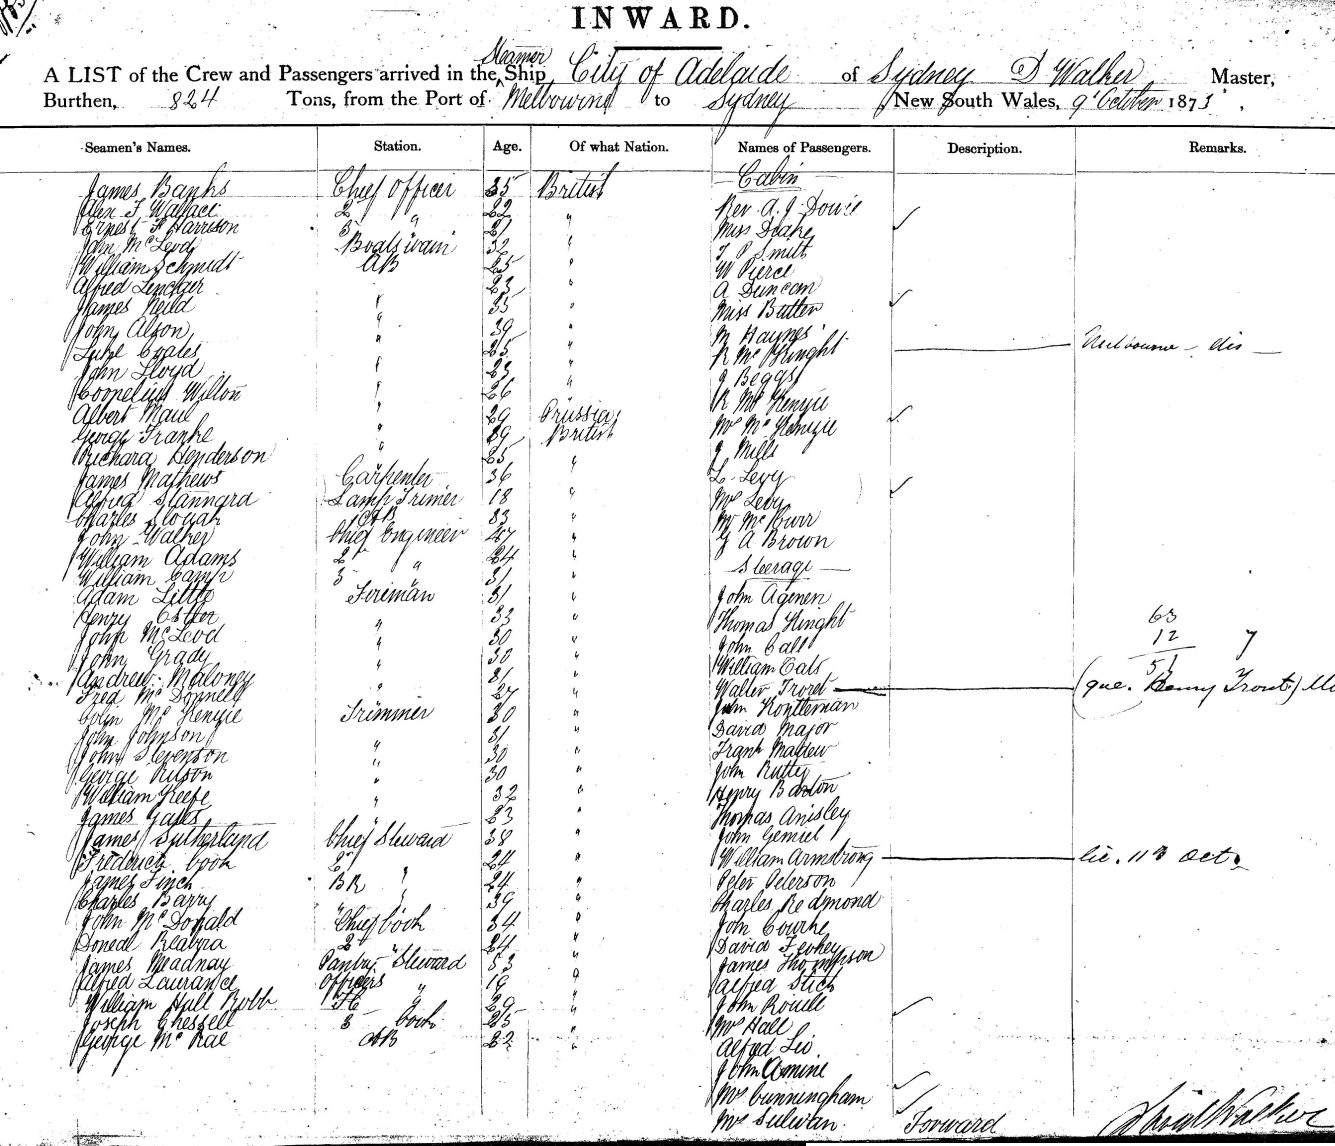 INWARD.
Steamer
A LIST of the Crew and Passengers arrived in the Ship City of Adelaide of Sydney D Walker Master,
Burthen, 824 Tons, from the Port of Melbourne to Sydney New South Wales, 9 October 1873
Seamen's Names. Station. Age. Of what Nation. Names of Passengers. Description. Remarks.
James Banks Chief Officer 35 British Cabin
Alex T Wallace 2 " 22 " Rev A. J. Dowie
Ernest F Harrison 3 " 21 " Miss Drake
John McLeod Boatswain 32 " T P Smitt
William Schmidt AB 25 " W Pierce
Alfred 23 " A Duncan
James Reid " 35 " Miss Butler
John Alson " 39 " M Haynes
Luke Coates " 25 " R McKnight Melbourne - dis -
John Lloyd " 23 " J Beggs
Cornelius Wilton " 26 " R McKenzie
Albert Maul " 29 Prussia Mrs McKenzie
George Franke " 39 British J Mills
Richard Henderson " 25 " L. Levy
James Mathews Carpenter 36 " Mrs Levy
Alfred Stannard Lamp Trimer 18 "
Charles Slough AB 33 " G A Brown
John Walker Chief Engineer 47 "
William Adams 2 " 24 " Steerage
William Camp 3 " 31 "
Adam Little Fireman 31 " John Agenen
Henry Ostler " 33 " Thomas Knight 63
John McLeod " 30 " John Call 12 7
John Grady " 30 " William Cats 51
Andrew Maloney " 31 " Walter Trovet (que. Henry Trout)
Fred McDonnell " 27 " John
Colin McKenzie Trimmer 30 " David Major
John Johnson " 31 " Frank Maldew
John Stevenson " 30 " John Rutty
George Rilson " 30 " Henry Barton
William Keefe " 32 " Thomas Anisley
James Yates " 23 " John Gemiel
James Sutherland Chief Steward 38 " William Armstrong lie. 113 Oct.
Frederick Cook 2 " 24 " Peter Peterson
James Finch BR " 24 " Charles Redmond
Charles Barry " 39 " John Courke
John McDonald Chief Cook 34 " David Feehey
Doneal 2 " 24 " James Thompson
James Meadnay Pantry Steward 33 " Alfred Stich
Alfred Laurance Officers " 19 " John Rouell
William Hall Robb FC " 29 " Mrs Hall
Joseph Chessell 3 Cook 25 " Alfred Leo
George McRae AB 22 " John Amine
Mrs Cunningham
Mrs Sulivan Forward David Walker